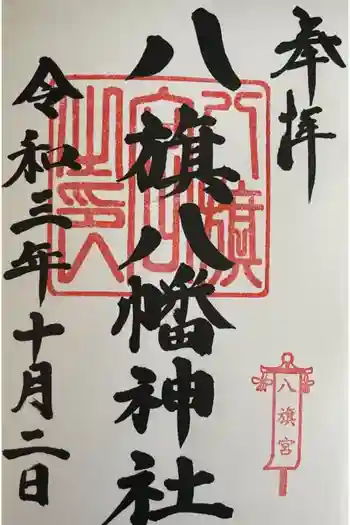 奉拝
八旗八幡神社
令和三年十月二日
八旗宮